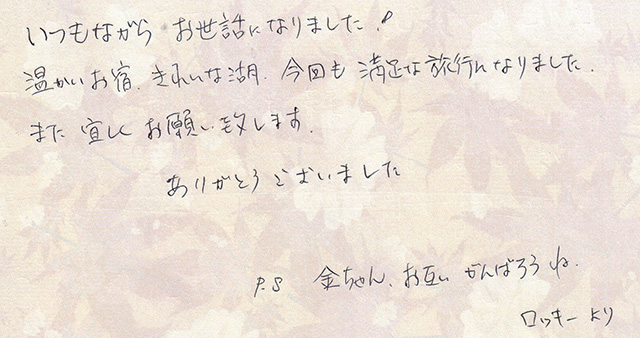 いつもながら お世話になりました!
温かいお宿、きれいな湖、今回も 満足な旅行になりました。
また 宜しく お願い致します。
ありがとうございました
P.S 金ちゃん、お互い がんばろうね。
ロッキーより